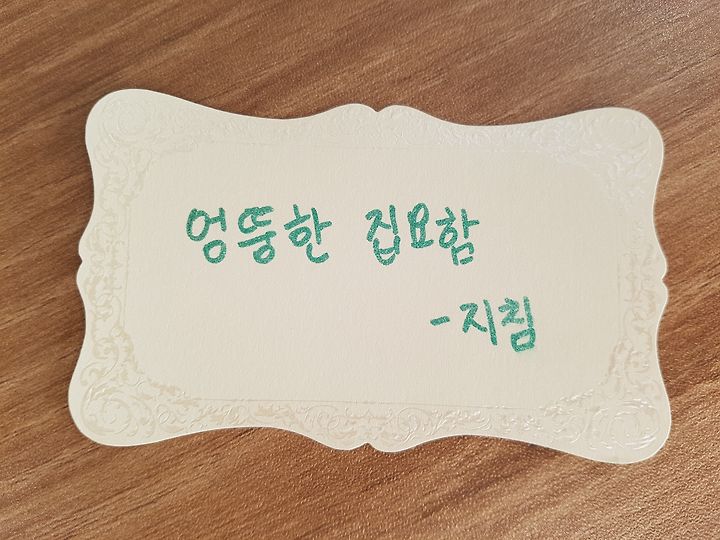 엉뚱한 집요함
-지침